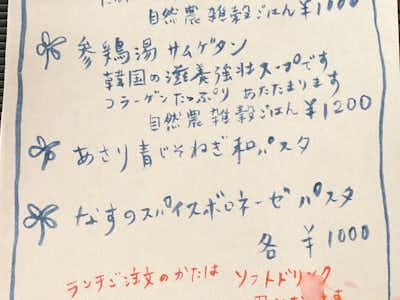 自然農 雑穀ごはん ¥1000
参鶏湯 サムゲタン
韓国の滋養強壮スープです
コラーゲンたっぷり あたたまります
自然農 雑穀ごはん ¥1200
あさり青じそねぎ和パスタ
なすのスパイスボロネーゼパスタ
各 ¥1000
ランチご注文のかたは ソフトドリンク